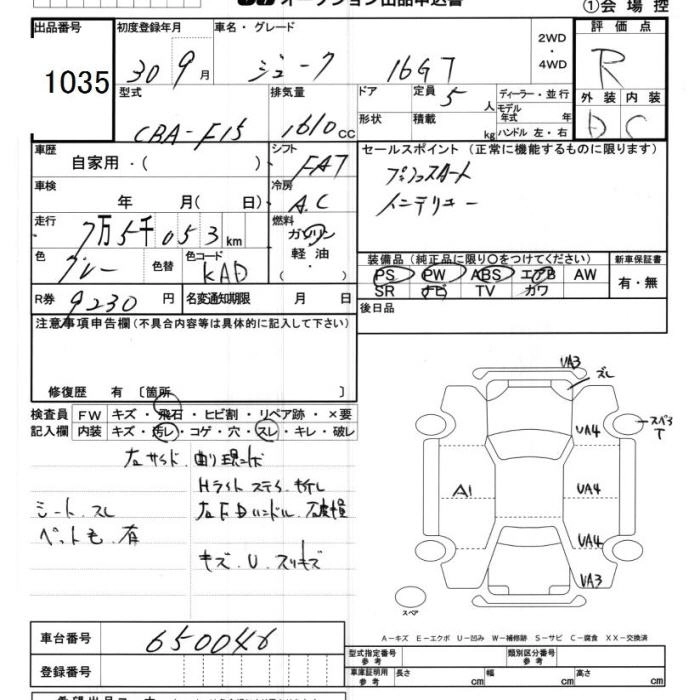 オークション出品申込書 ①会場控
出品番号 初度登録年月 車名・グレード 2WD ・ 4WD 評価点
1035 30 9月 ジューク 16GT R
型式 排気量 ドア 定員 5 人 ディーラー・並行 外装 内装
CBA-F15 1610 cc 形状 積載 kg モデル年式 年 ハンドル 左・右 D C
車歴 自家用・( ) シフト FAT セールスポイント (正常に機能するものに限ります)
車検 年 月( 日) 冷房 A.C プッシュスタート
インテリキー
走行 7万5千053km 燃料 ガソリン 軽油 ・
色 グレー 色替 色コード KAD 装備品(純正品に限り○をつけてください) 新車保証書
PS PW ABS エアB AW 有・無
R券 9230円 名変通知期限 月 日 SR ナビ TV カワ
注意事項申告欄(不具合内容等は具体的に記入して下さい) 後日品
修復歴 有〔箇所 〕
検査員 FW キズ・飛石・ヒビ割・リペア跡・×要
記入欄 内装 キズ・汚レ・コゲ・穴・スレ・キレ・破レ
左サイド
Hライト ステイ 折レ
シート スレ
ペット毛 有
キズ U スリキズ
UA3
ズレ
UA4
T
A1 UA4
UA4
UA3
スペア
A-キズ E-エクボ U-凹み W-補修跡 S-サビ C-腐食 XX-交換済
車台番号 650046 型式指定番号 参考 類別区分番号 参考
登録番号 車庫証明用 参考 長さ cm 幅 cm 高さ cm